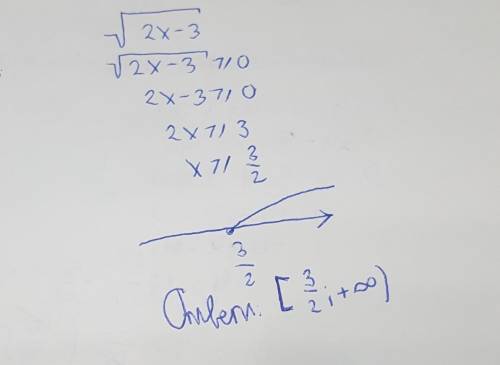 √2x-3
√2x-3 ⩾ 0
2x-3 ⩾ 0
2x ⩾ 3
x ⩾ 3/2
3/2
Ответ: [3/2; +∞)